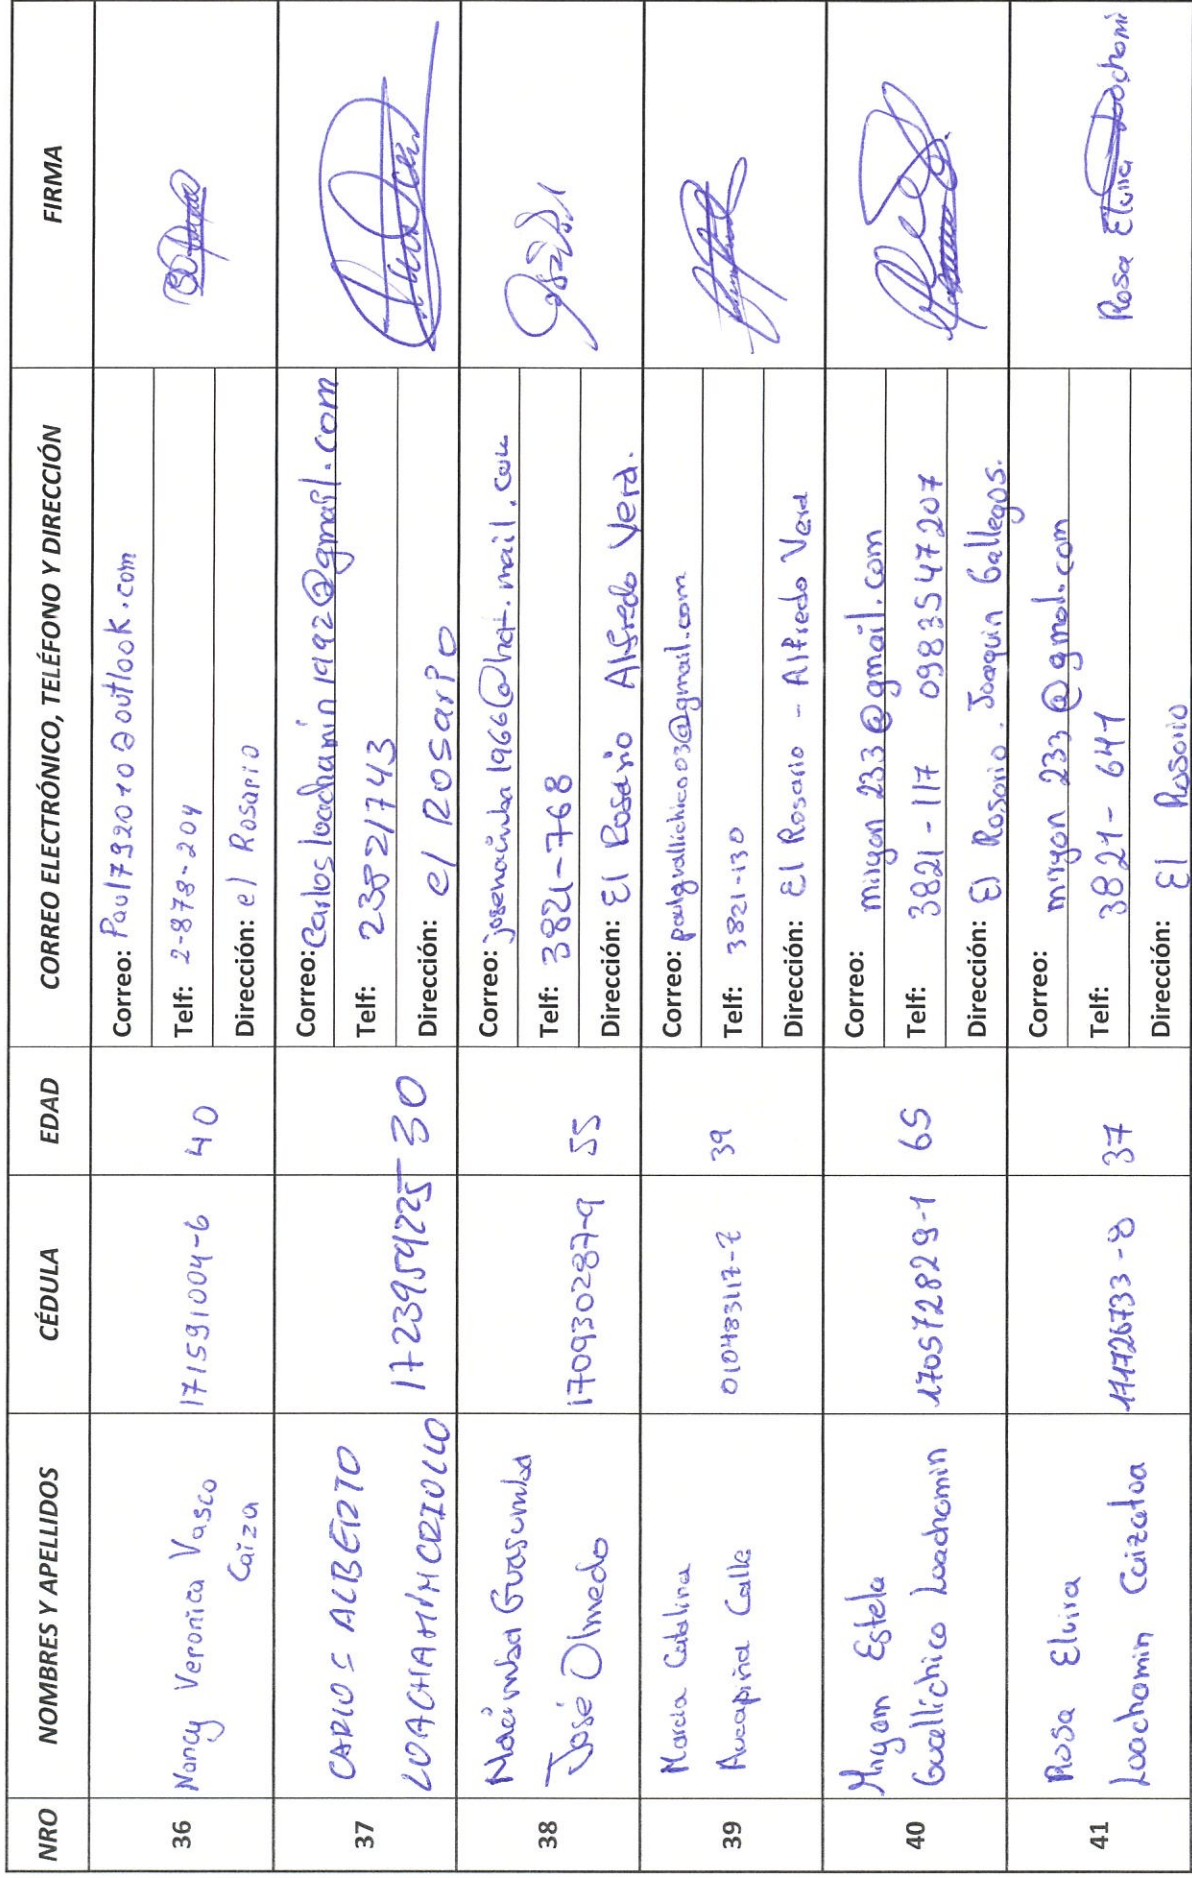 NRO NOMBRES Y APELLIDOS CÉDULA EDAD CORREO ELECTRÓNICO, TELÉFONO Y DIRECCIÓN FIRMA
36
Nancy Veronica Vasco
Caiza
171591004-6
40
Correo: Paul792010@outlook.com
Telf: 2-878-204
Dirección: el Rosario
37
CARLOS ALBERTO
LOACHAMIN CRIOLLO
1723959225
30
Correo: Carlosloachamin1992@gmail.com
Telf: 23821743
Dirección: el ROSARIO
38
José Olmedo
170930287-9
55
Correo: josenacimba1966@hot.mail.com
Telf: 3821-768
Dirección: El Rosario Alfredo Vera.
39
Marcia Catalina
Aucapiña Calle
010483117-7
39
Correo: paulguallichico03@gmail.com
Telf: 3821-130
Dirección: El Rosario - Alfredo Vera
40
Miryam Estela
Guallichico Loachamin
170572829-1
65
Correo: miryan233@gmail.com
Telf: 3821-117 0983547207
Dirección: El Rosario. Joaquin Gallegos.
41
Rosa Elvira
Loachamin Caizatoa
171726733-8
37
Correo: miryan 233@gmal.com
Telf: 3821-641
Dirección: El Rosario
Rosa Elvira Loachami